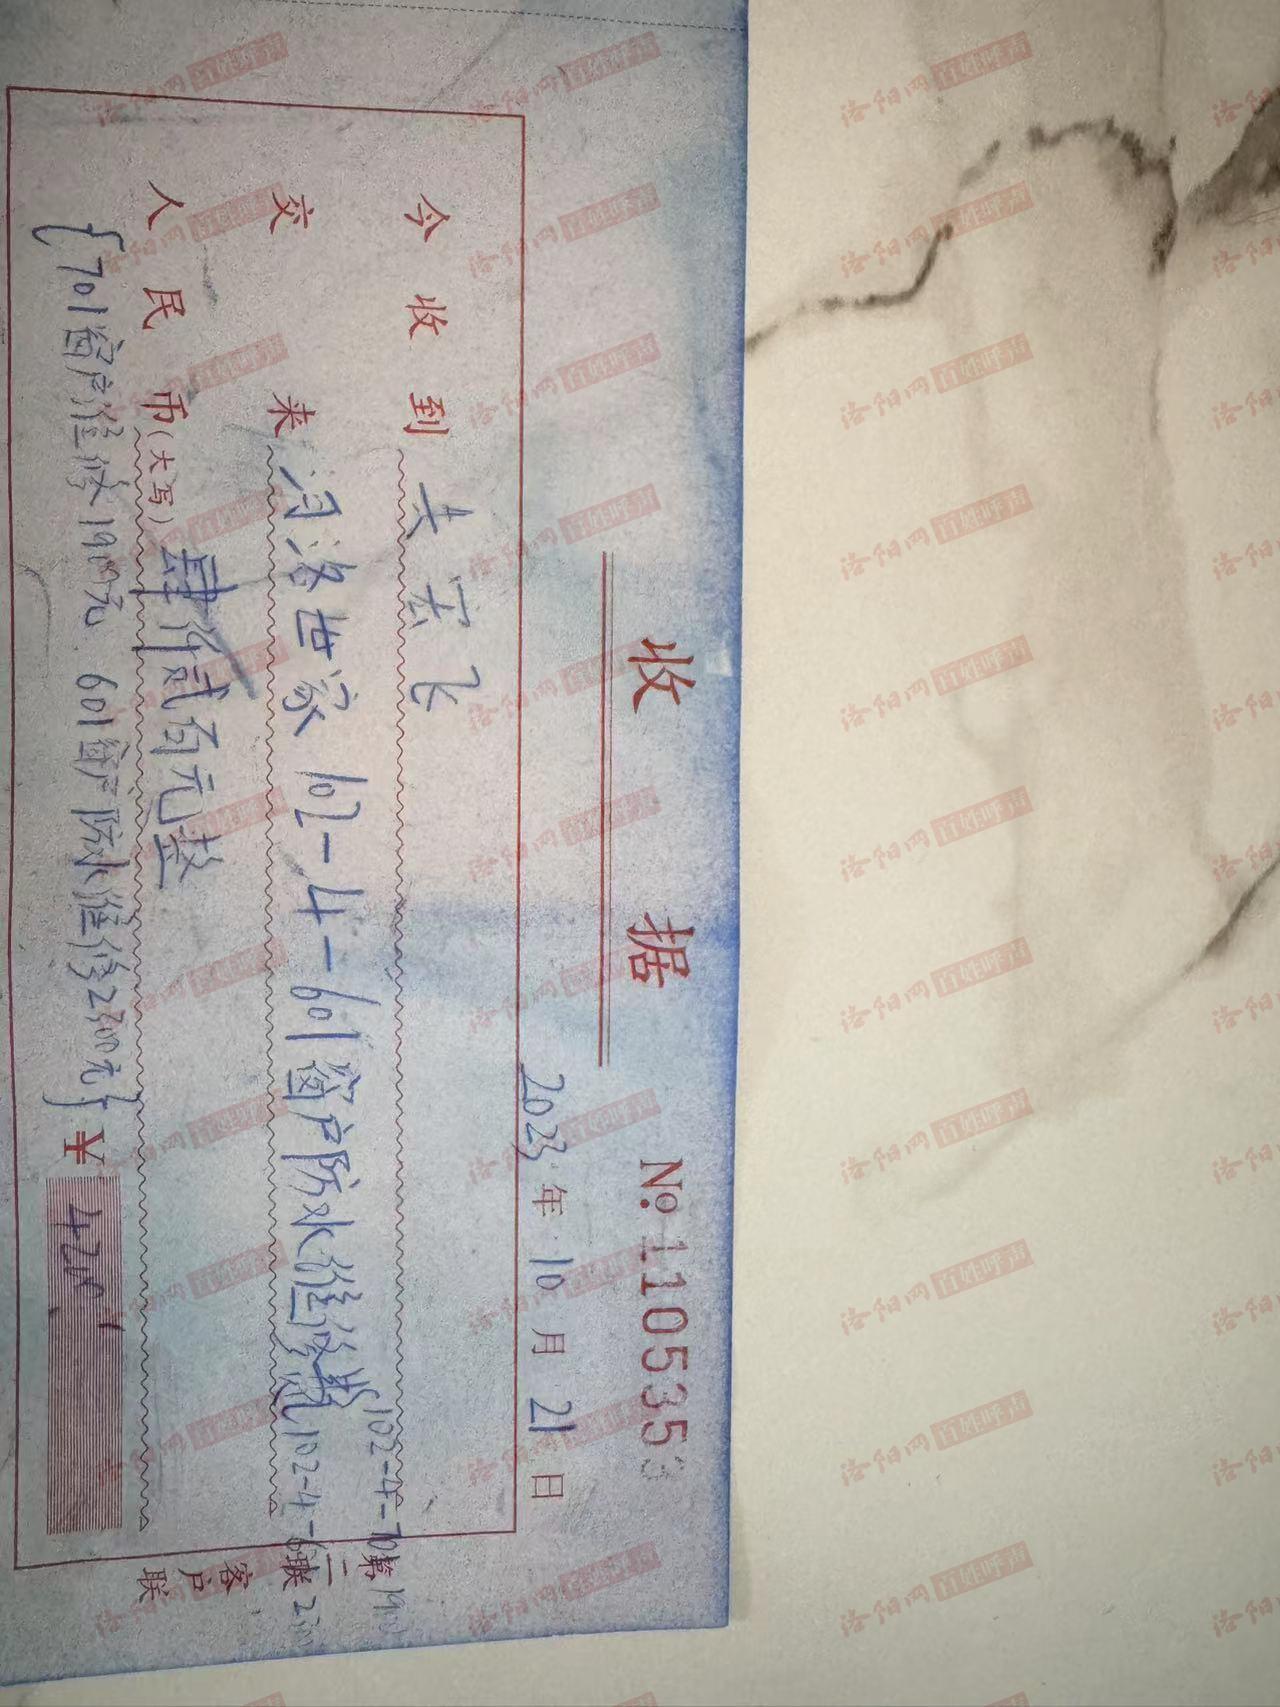 收 据
№ 110535
2023年10月21日
今收到
交来 河洛世家 102-4-601窗户防水维修费
102-4-701
1900
102-4-601
2300
人民币(大写) 肆仟贰佰元整
{701窗户维修1900元、601窗户防水维修2300元} ¥ 4200
第二联 客户联
洛阳网 百姓呼声